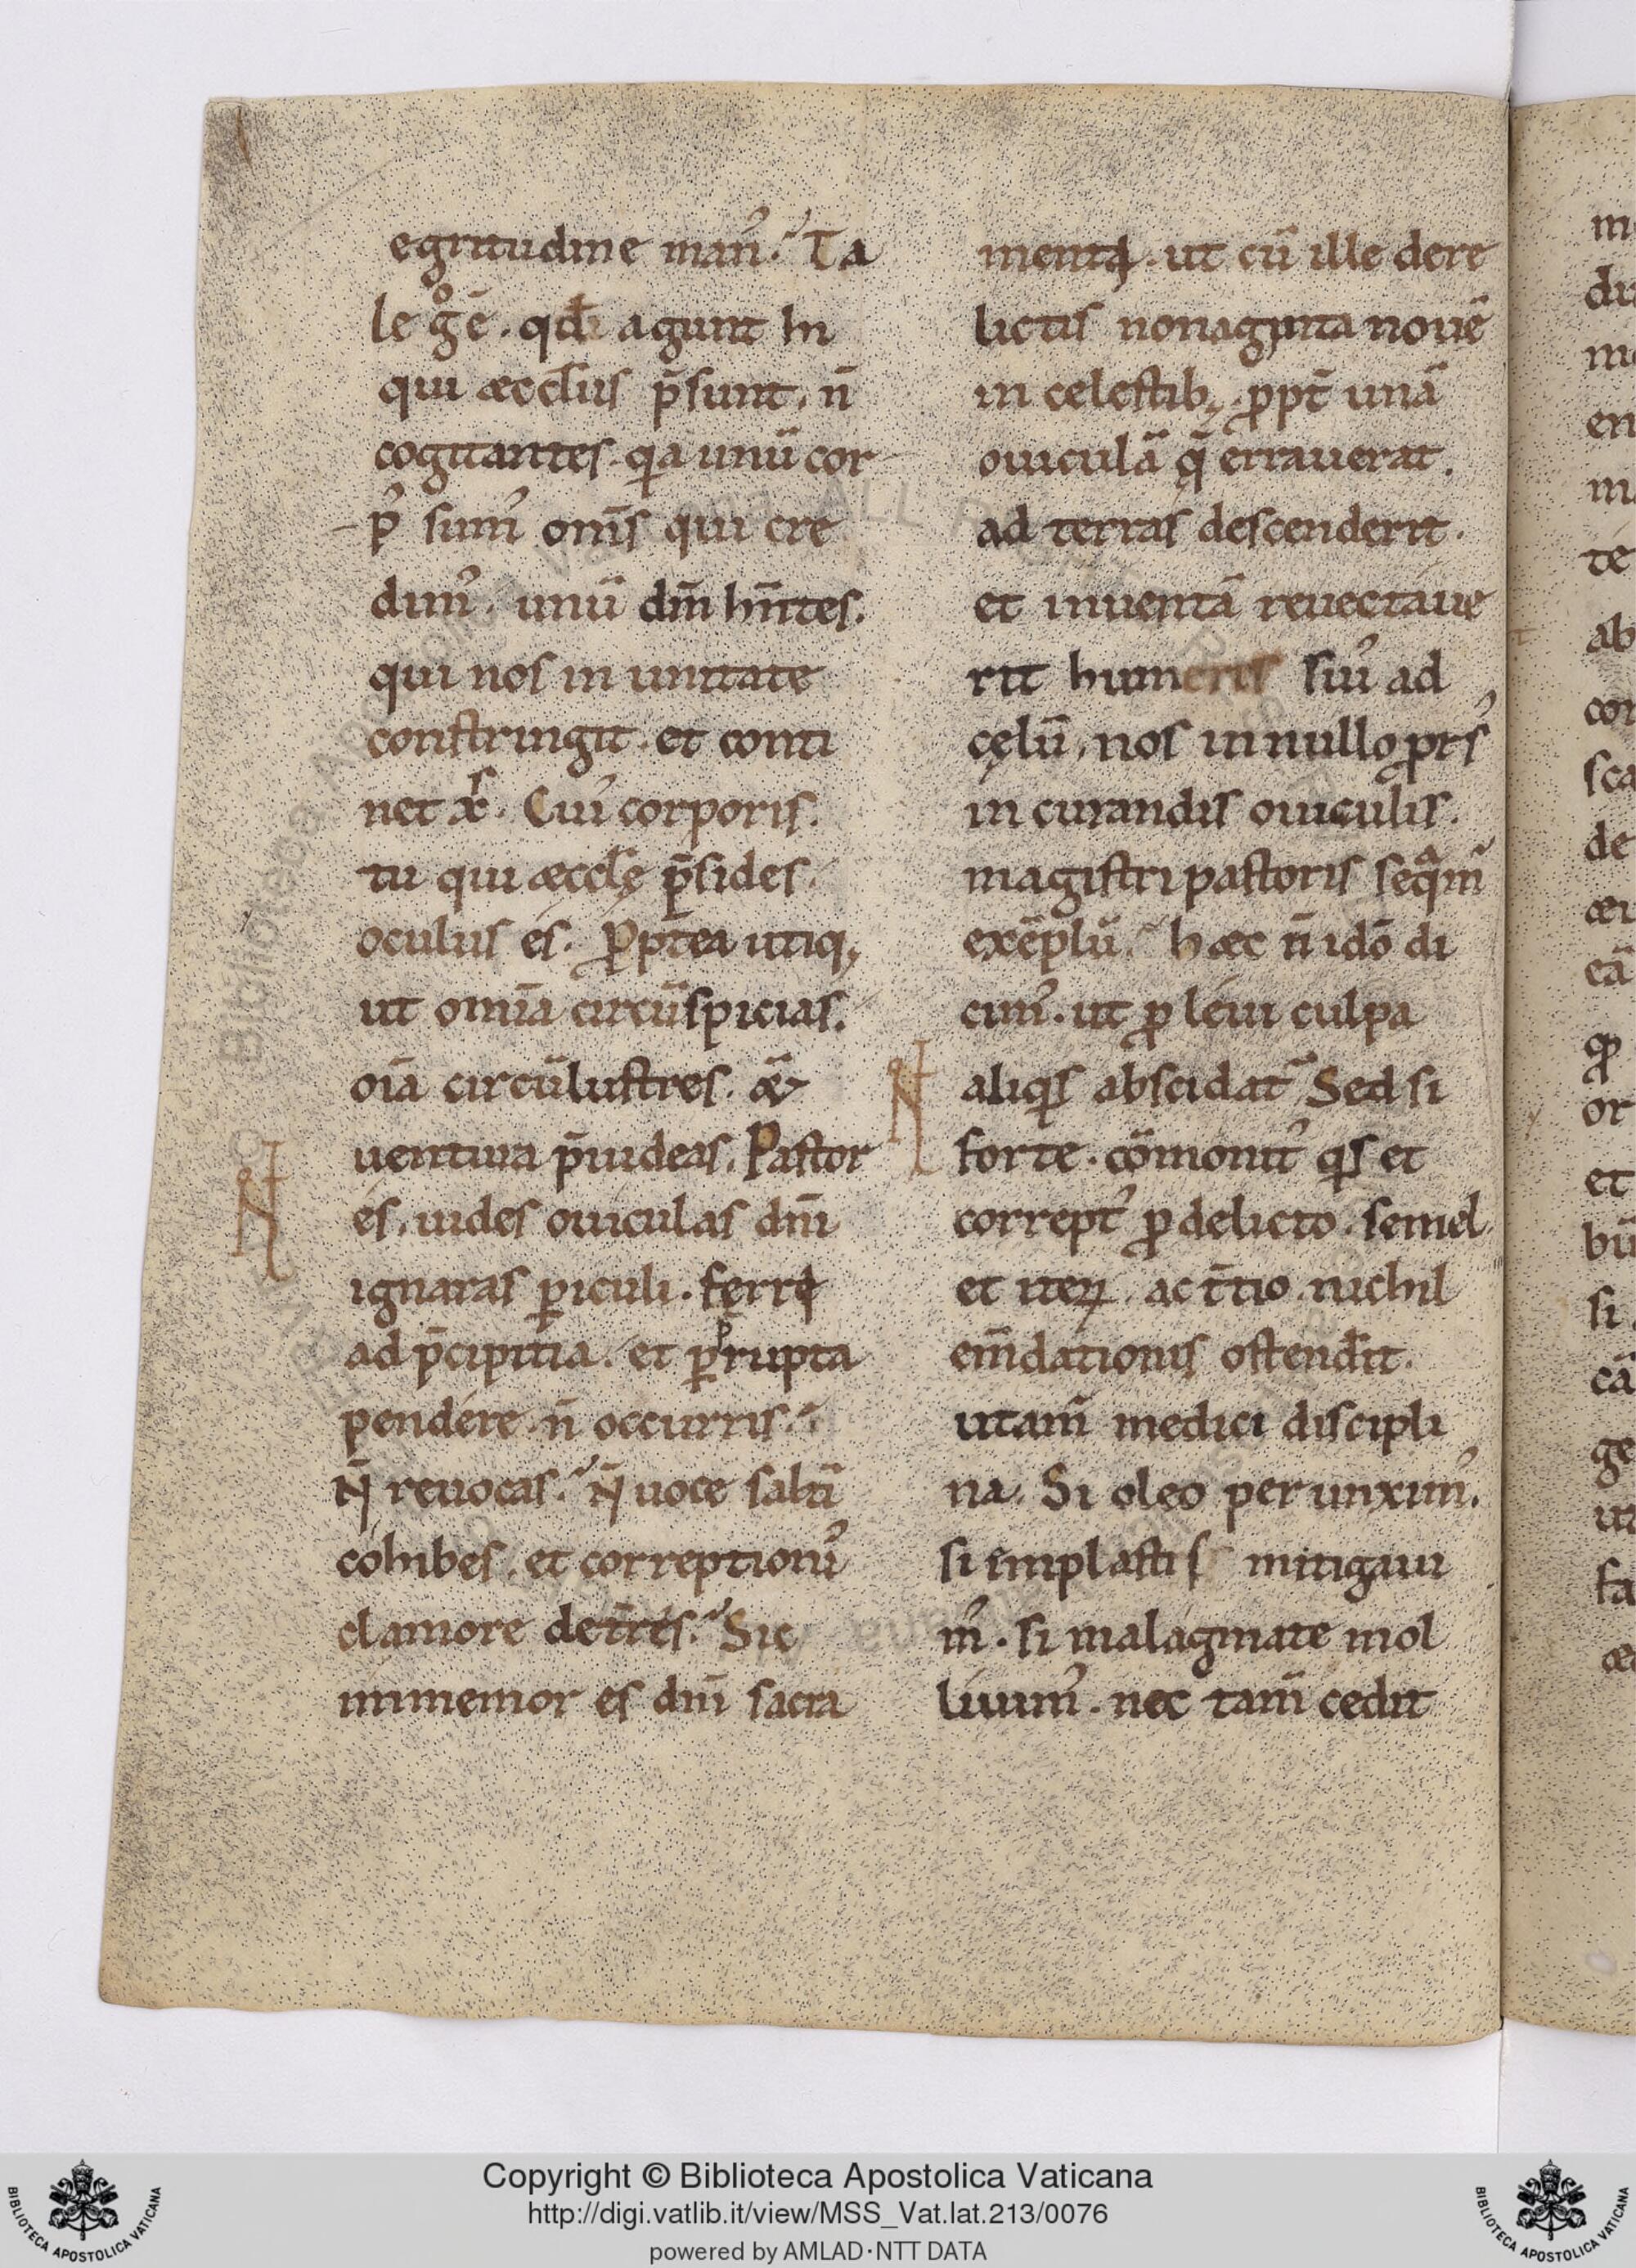 egritudine man᾿. Ta
le g̊ ē. qd̄ agunt hi
qui æccl̄iis p̄sunt. n̄
cogitantes. qͥa unū cor
p᾿ sum᾿ om̄s qui cre
dim᾿. unū dn̄m hn̄tes.
qui nos in unitate
constringit. et conti
net xr̄s. Cui᾿ corporis.
tu qui æccl̄ę p̄sides.
oculus es. ꝓptea utiq;
ut omīa circūspicias.
oīa circūlustres. &
uentura p̄uideas. Pastor
es. uides ouiculas dn̄i
ignaras ꝑiculi. ferrı̨
ad p̄cipitia. et ꝑrupta
pendere. n̄ occurris.
Nͬ reuocas. Nͬ uoce saltī
cohibes. et correptionū
clamore det̄res. Sic
inmemor es dn̄i sacra
mentı̨. ut cū ille dere
lictis nonaginta nouē
in celestib; ꝓpt̄ unā
ouiculā q̄ errauerat.
ad terras descenderit.
et inuentā reuectaue
rit humeris suis ad
cęlū. nos in nullo ꝓrs᾿
in curandis ouiculis.
magistri pastoris seqͣm᾿
exēplū. hæc n̄ idō di
cim᾿. ut ꝓ leui culpa
aliqͥs abscidat᾿ Sed si
forte. cōmonit᾿ qͥs et
corrept᾿ ꝓ delicto. semel
et iteꝝ. ac t̄tio nichil
em̄dationis ostend̄it.
utam᾿ medici discipli
na. Si oleo perunxim᾿.
si implastis mitigaui
m᾿. si malagmate mol
liuim᾿. nec tam̄ cedit
Copyright © Biblioteca Apostolica Vaticana
http://digi.vatlib.it/view/MSS_Vat.lat.213/0076
powered by AMLAD·NTT DATA
BIBLIOTECA APOSTOLICA VATICANA
BIBLIOTECA APOSTOLICA VATICANA